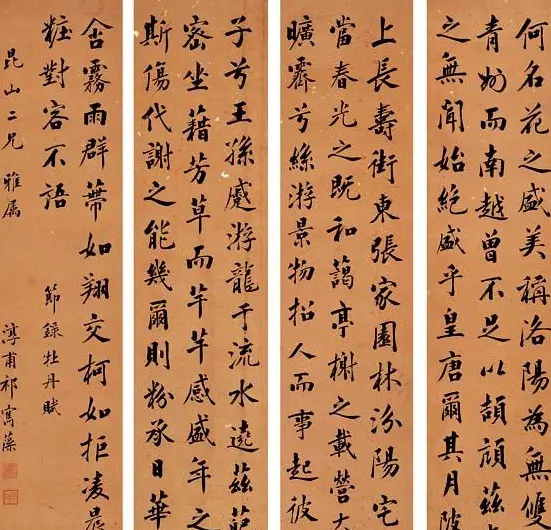 何名花之盛美稱洛陽為無雙
青州而南越曾不足以頡頏茲
之無聞始絕盛乎皇唐爾其月陂
上長壽街東張家園林汾陽宅
當春光之既和藹亭榭之載營
曠霽兮絲游景物招人而事起彼
子兮王孫蹙游龍于流水遶茲
密坐藉芳草而芊芊感盛年之
斯傷代謝之能幾爾則粉承日華
含霧雨群蕚如翔交柯如拒凌晨
粧對客不語
節錄牡丹賦
昆山二兄雅屬
淳甫祁寯藻